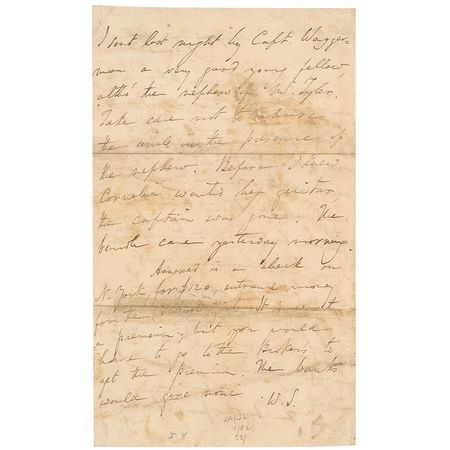 I sent last night by Capt. Wagger-
man a very good young fellow,
altho' the nephew of Mr. Tyler.
Take care not to abuse
the uncle in the presence of
the nephew. Before I knew
Cornelia wanted her guitar,
the captain was gone. The
bundle came yesterday morning.
Annexed is a check on
N. York, for $120, entrance money
for the It is worth
a premium, but you would
have to go to the Brokers to
get the Premium. The banks
would give none. W.S.